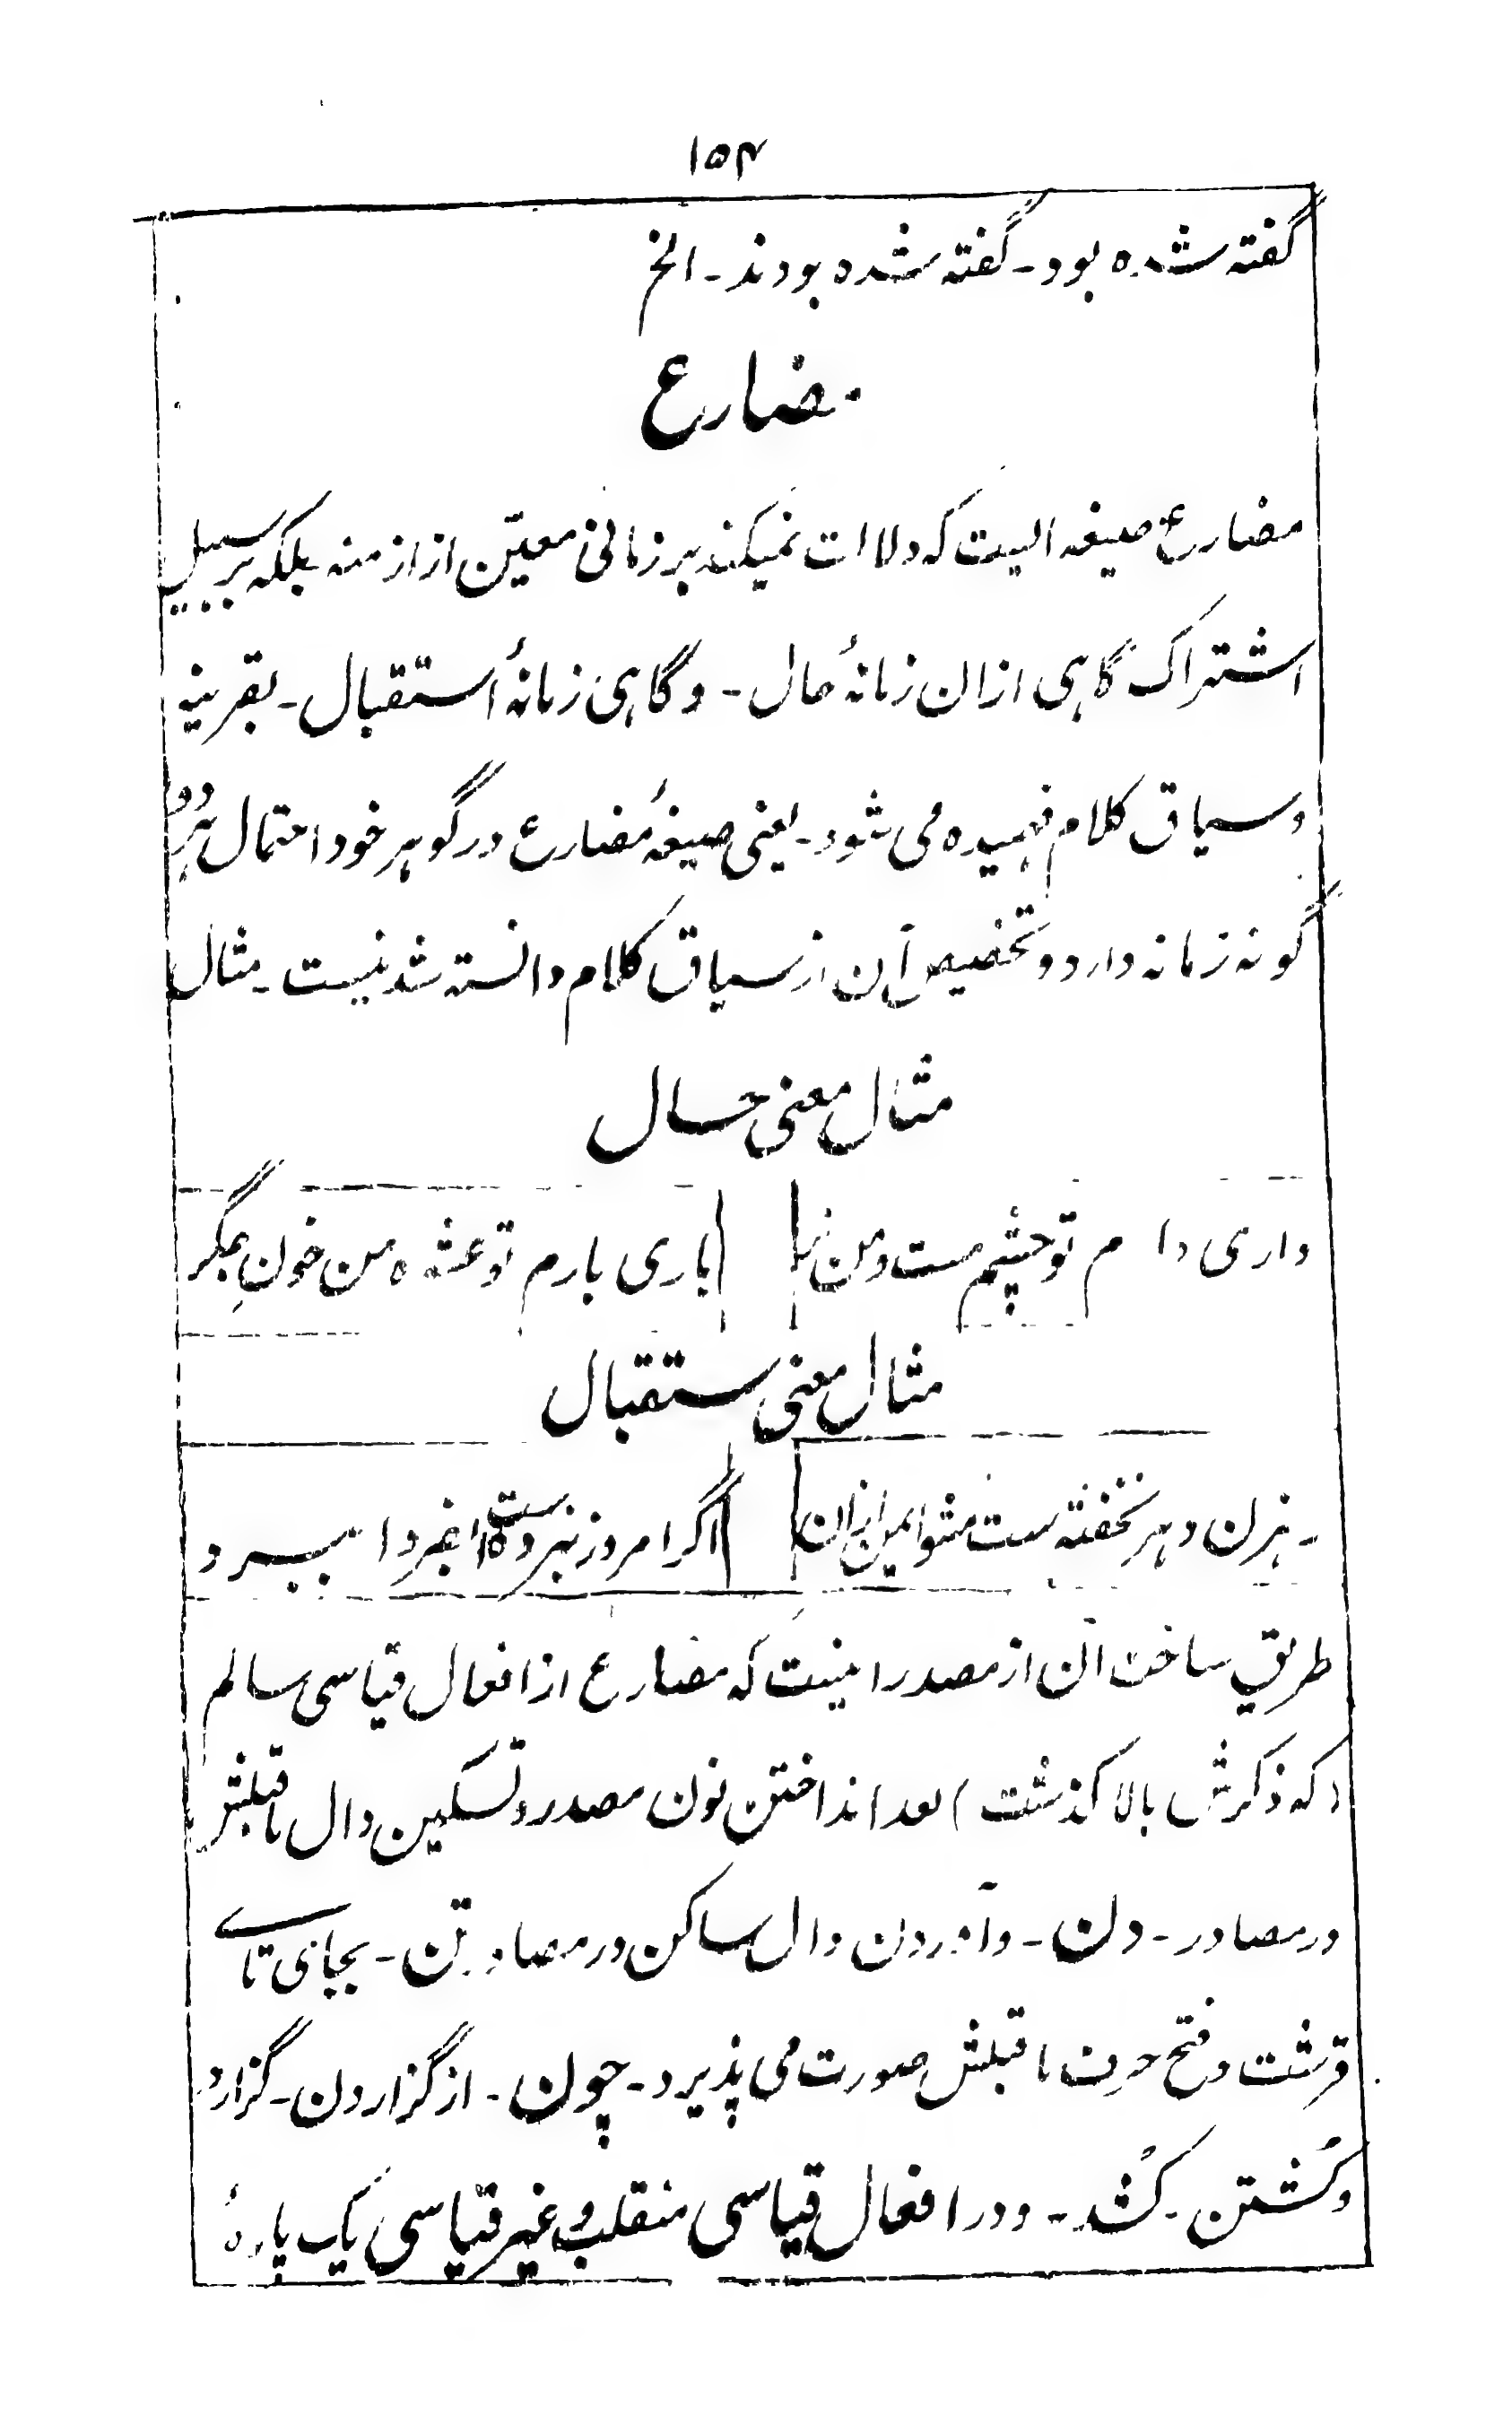 ۱۵۴
گفته شده بود۔ گفته شده بودند۔ الخ
مضارع
مضارع صیغه ایست که دلالت نمیکند بر زمانی معیّن از ازمنه بلکه بر سبیل
اشتراک گاہی ازان زمانۂ حال۔ و گاہی زمانۂ استقبال۔ بقرینه
و سیاق کلام فهمیده می شود۔ یعنی صیغۂ مضارع در گوہر خود احتمال ہر دو
گونه زمانه دارد و تخصیص آن از سیاق کلام دانسته شدنیست۔ مثال
مثال معنی حال
داری دارم تو چشم مست و من باری بارم تو عشوه من خونِ جگر
مثال معنی ستقبال
رہزن دہر نخفته ست مشو ایمن ازان اگر امروز نبردست که فردا ببرد
طریق ساخت آن از مصدر اینست که مضارع از افعال قیاسی سالم
(که ذکرش بالا گذشت) بعد انداختن نون مصدر و تسکین دال ماقبلش
در مصادر۔ دن۔ و آوردن دال ساکن در مصادر تن۔ بجای تاے
قرشت و فتح حرف ماقبلش صورت می پذیرد۔ چون۔ از گزاردن۔ گزارد
و کُشتن۔ کُشد۔ و در افعال قیاسی منقلب و غیر قیاسی یک پارۂ